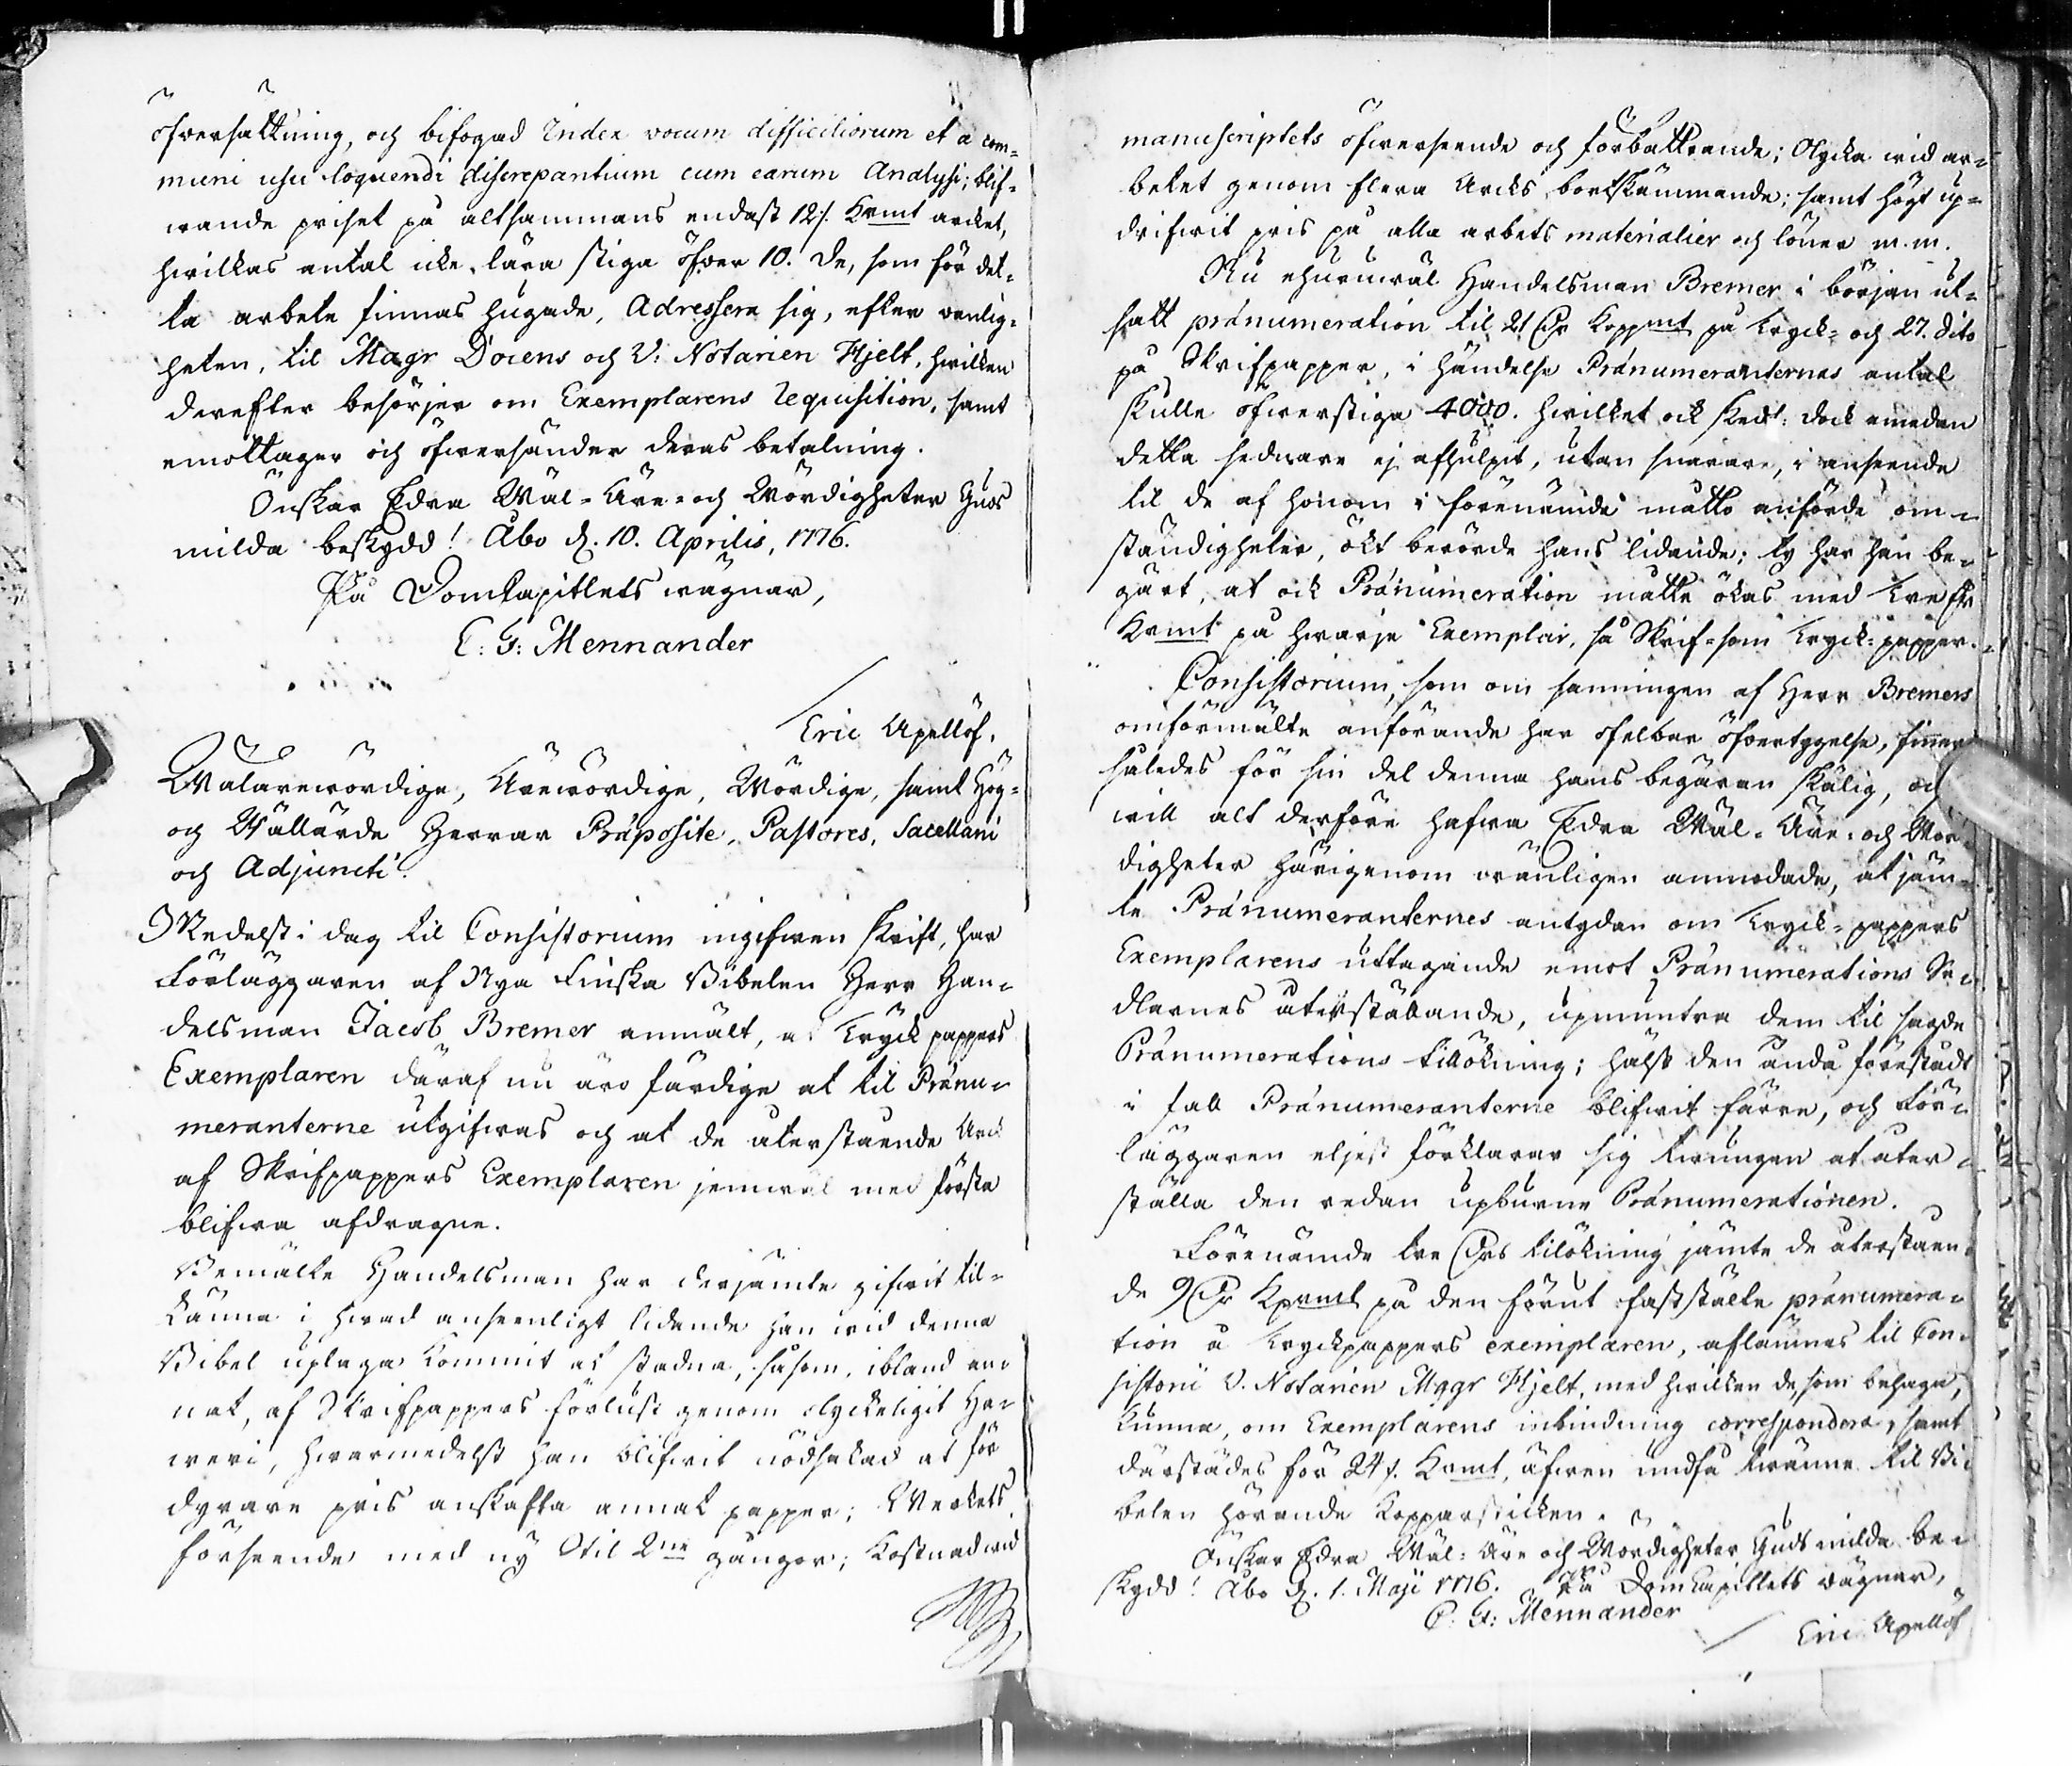 öfwersättning, och bifogad Index vocum difficiliorum et a com=
muni usu loquendi discrepantium cum earum Analysi; blif=
wande priset på altsammans endast 12 /. Kmt arcket,
hwilkas antal icke lära stiga öfwer 10. De, som för det=
ta arbete finnas hugade, Adressera sig, efter wanlig=
heten, til Magr Docens och V: Notarien Hjelt, hwilken
derefter besörjer om Exemplarens requisition, samt
emottager och öfwersänder deras betalning.
Önskar Edra Wäl= Äre= och Wördigheter Guds
milda beskydd! Åbo d. 10. Aprilis, 1776.
På DomCapitlets wägnar,
C: F: Mennander
Eric Apellöf.
Wälärewördige, Ärewördige, Wördige, samt Hög=
och Wällärde Herrar Præposite, Pastores, Sacellani
och Adjuncti.
Medelst i dag til Consistorium ingifwen skrift, har
Förläggaren af Nya Finska Bibelen Herr Han=
delsman Jacob Bremer anmält, at Tryck pappers
Exemplaren däraf nu äro färdige at til Prænu=
meranterne utgifwas och at de återstående Arck
af Skrifpappers Exemplaren jemwäl med första
blifwa afdragne.
Bemälte Handelsman har derjämte gifwit til=
känna i hwad ansenligt lidande han wid denna
Bibel uplaga kommit at stadna, såsom, ibland an=
nat, af Skrifpappers förlust genom olyckeligit Ha=
weri, hwarmedelst han blifwit nödsakad at för
dyrare pris anskaffa annat papper; Werkets
förseende med ny Stil 2ne gångor; Kostnad wid
manuscriptets öfwerseende och förbättrande; Olycka wid ar=
betet genom flera Arcks bortskämmande; samt högt up=
drifwit pris på alla arbets materialier och löner m.m.
Nu ehuruwäl Handelsman Bremer i början ut=
satt prænumeration til 21 Dr Koppmt på Tryck= och 27. dito
på Skrifpapper, i händelse Prænumeranternas antal
skulle öfwerstiga 4000. hwilket ock skedt: dock emedan
detta sednare ej afhulpit, utan snarare, i anseende
til de af honom i förenämde måtto anförde om=
ständigheter, ökt berörde hans lidande; ty har han be=
gärt, at ock Prænumeration måtte ökas med tre Dr
Kmt på hwarje Exemplar, så Skrif= som Tryck=papper.
Consistorium, som om sanningen af Herr Bremers
omförmälte anförande har ofelbar öfwertygelse, finner
således för sin del denna hans begäran skälig, och
will alt derföre hafwa Edra Wäl= Äre= och Wör=
digheter härigenom wänligen anmodade, at jäm=
te Prænumeranternes antydan om Tryck=pappers
Exemplarens uttagande emot Prænumerations Se=
dlarnes återställande, upmuntra dem til sagde
Prænumerations tillökning; hälst den ändå förestådt
i fall Prænumeranterne blifwit färre, och För=
läggaren eljest förklarar sig twungen at åter=
ställa den redan upburne Prænumerationen.
Förenämde tre Drs tilökning jämte de återståen=
de 9 Dr Kprmt på den förut fastställe prænumera=
tion å tryckpappers exemplaren, aflämnas til Con=
sistorii V. Notarien Magr Hjelt, med hwilken de, som behaga,
kunna, om Exemplarens inbindning correspondera, samt
därstädes för 24 /. Kmt, äfwen undfå twänne til Bi=
belen hörande Kopparsticken.
Önskar Edra Wäl= Äre och Wördigheter Guds milda be=
skydd! Åbo d. 1. Maji 1776. På DomCapitlets wägnar,
C: F: Mennander
Eric Apellöf